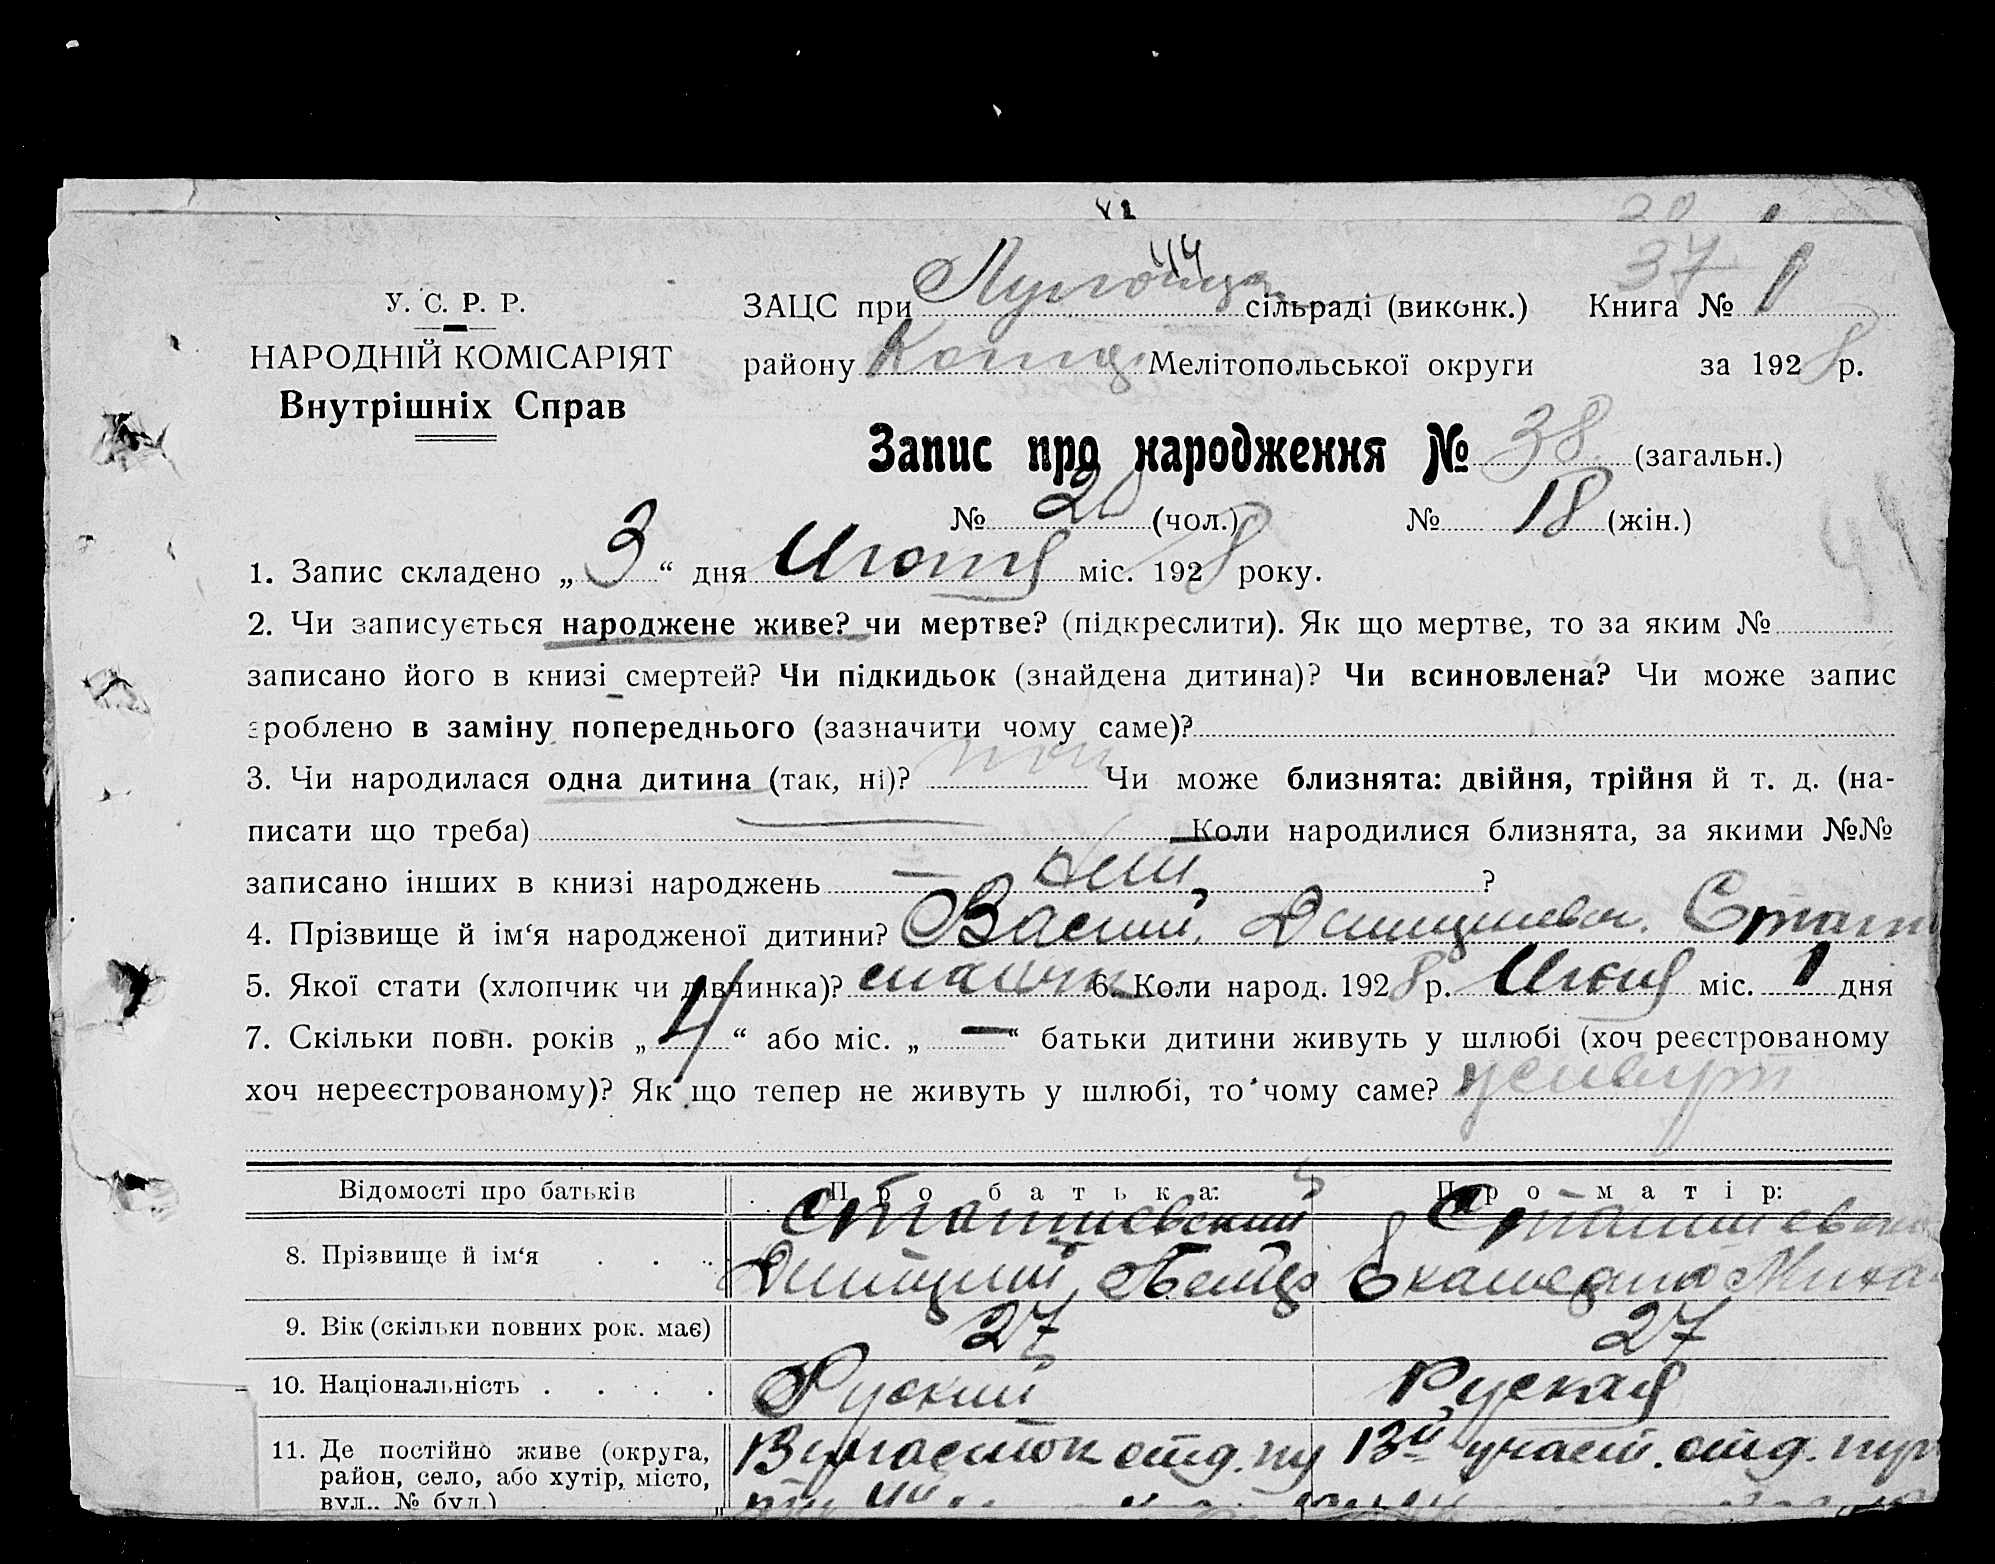 37 1
У. С. Р. Р.
НАРОДНІЙ КОМІСАРІЯТ
Внутрішніх Справ
ЗАЦС при сільраді (виконк.) Книга № 1
району Мелітопольської округи за 1928 р.
Запис про народження № 38 (загальн.)
№ 20 (чол.) № 18 (жін.)
1. Запис складено „3“ дня Июня міс. 1928 року.
2. Чи записується народжене живе? чи мертве? (підкреслити). Як що мертве, то за яким №
записано його в книзі смертей? Чи підкидьок (знайдена дитина)? Чи всиновлена? Чи може запис
зроблено в заміну попереднього (зазначити чому саме)?
3. Чи народилася одна дитина (так, ні)? Чи може близнята: двійня, трійня й т. д. (на-
писати що треба) Коли народилися близнята, за якими №№
записано інших в книзі народжень — ?
4. Прізвище й ім‘я народженої дитини?
5. Якої стати (хлопчик чи дівчинка)? 6. Коли народ. 1928 р. Июня міс. 1 дня
7. Скільки повн. років „4“ або міс. „—“ батьки дитини живуть у шлюбі (хоч реєстрованому
хоч нереєстрованому)? Як що тепер не живуть у шлюбі, то чому саме?
Відомості про батьків Про батька: Про матір:
8. Прізвище й ім‘я . . . Сташевский
Дмитрий Петр
9. Вік (скільки повних рок. має) 27 27
10. Національність . . . . Руский Руская
11. Де постійно живе (округа, В участок отд. 13й участ. отд.
район, село, або хутір, місто,
вул., № буд.)